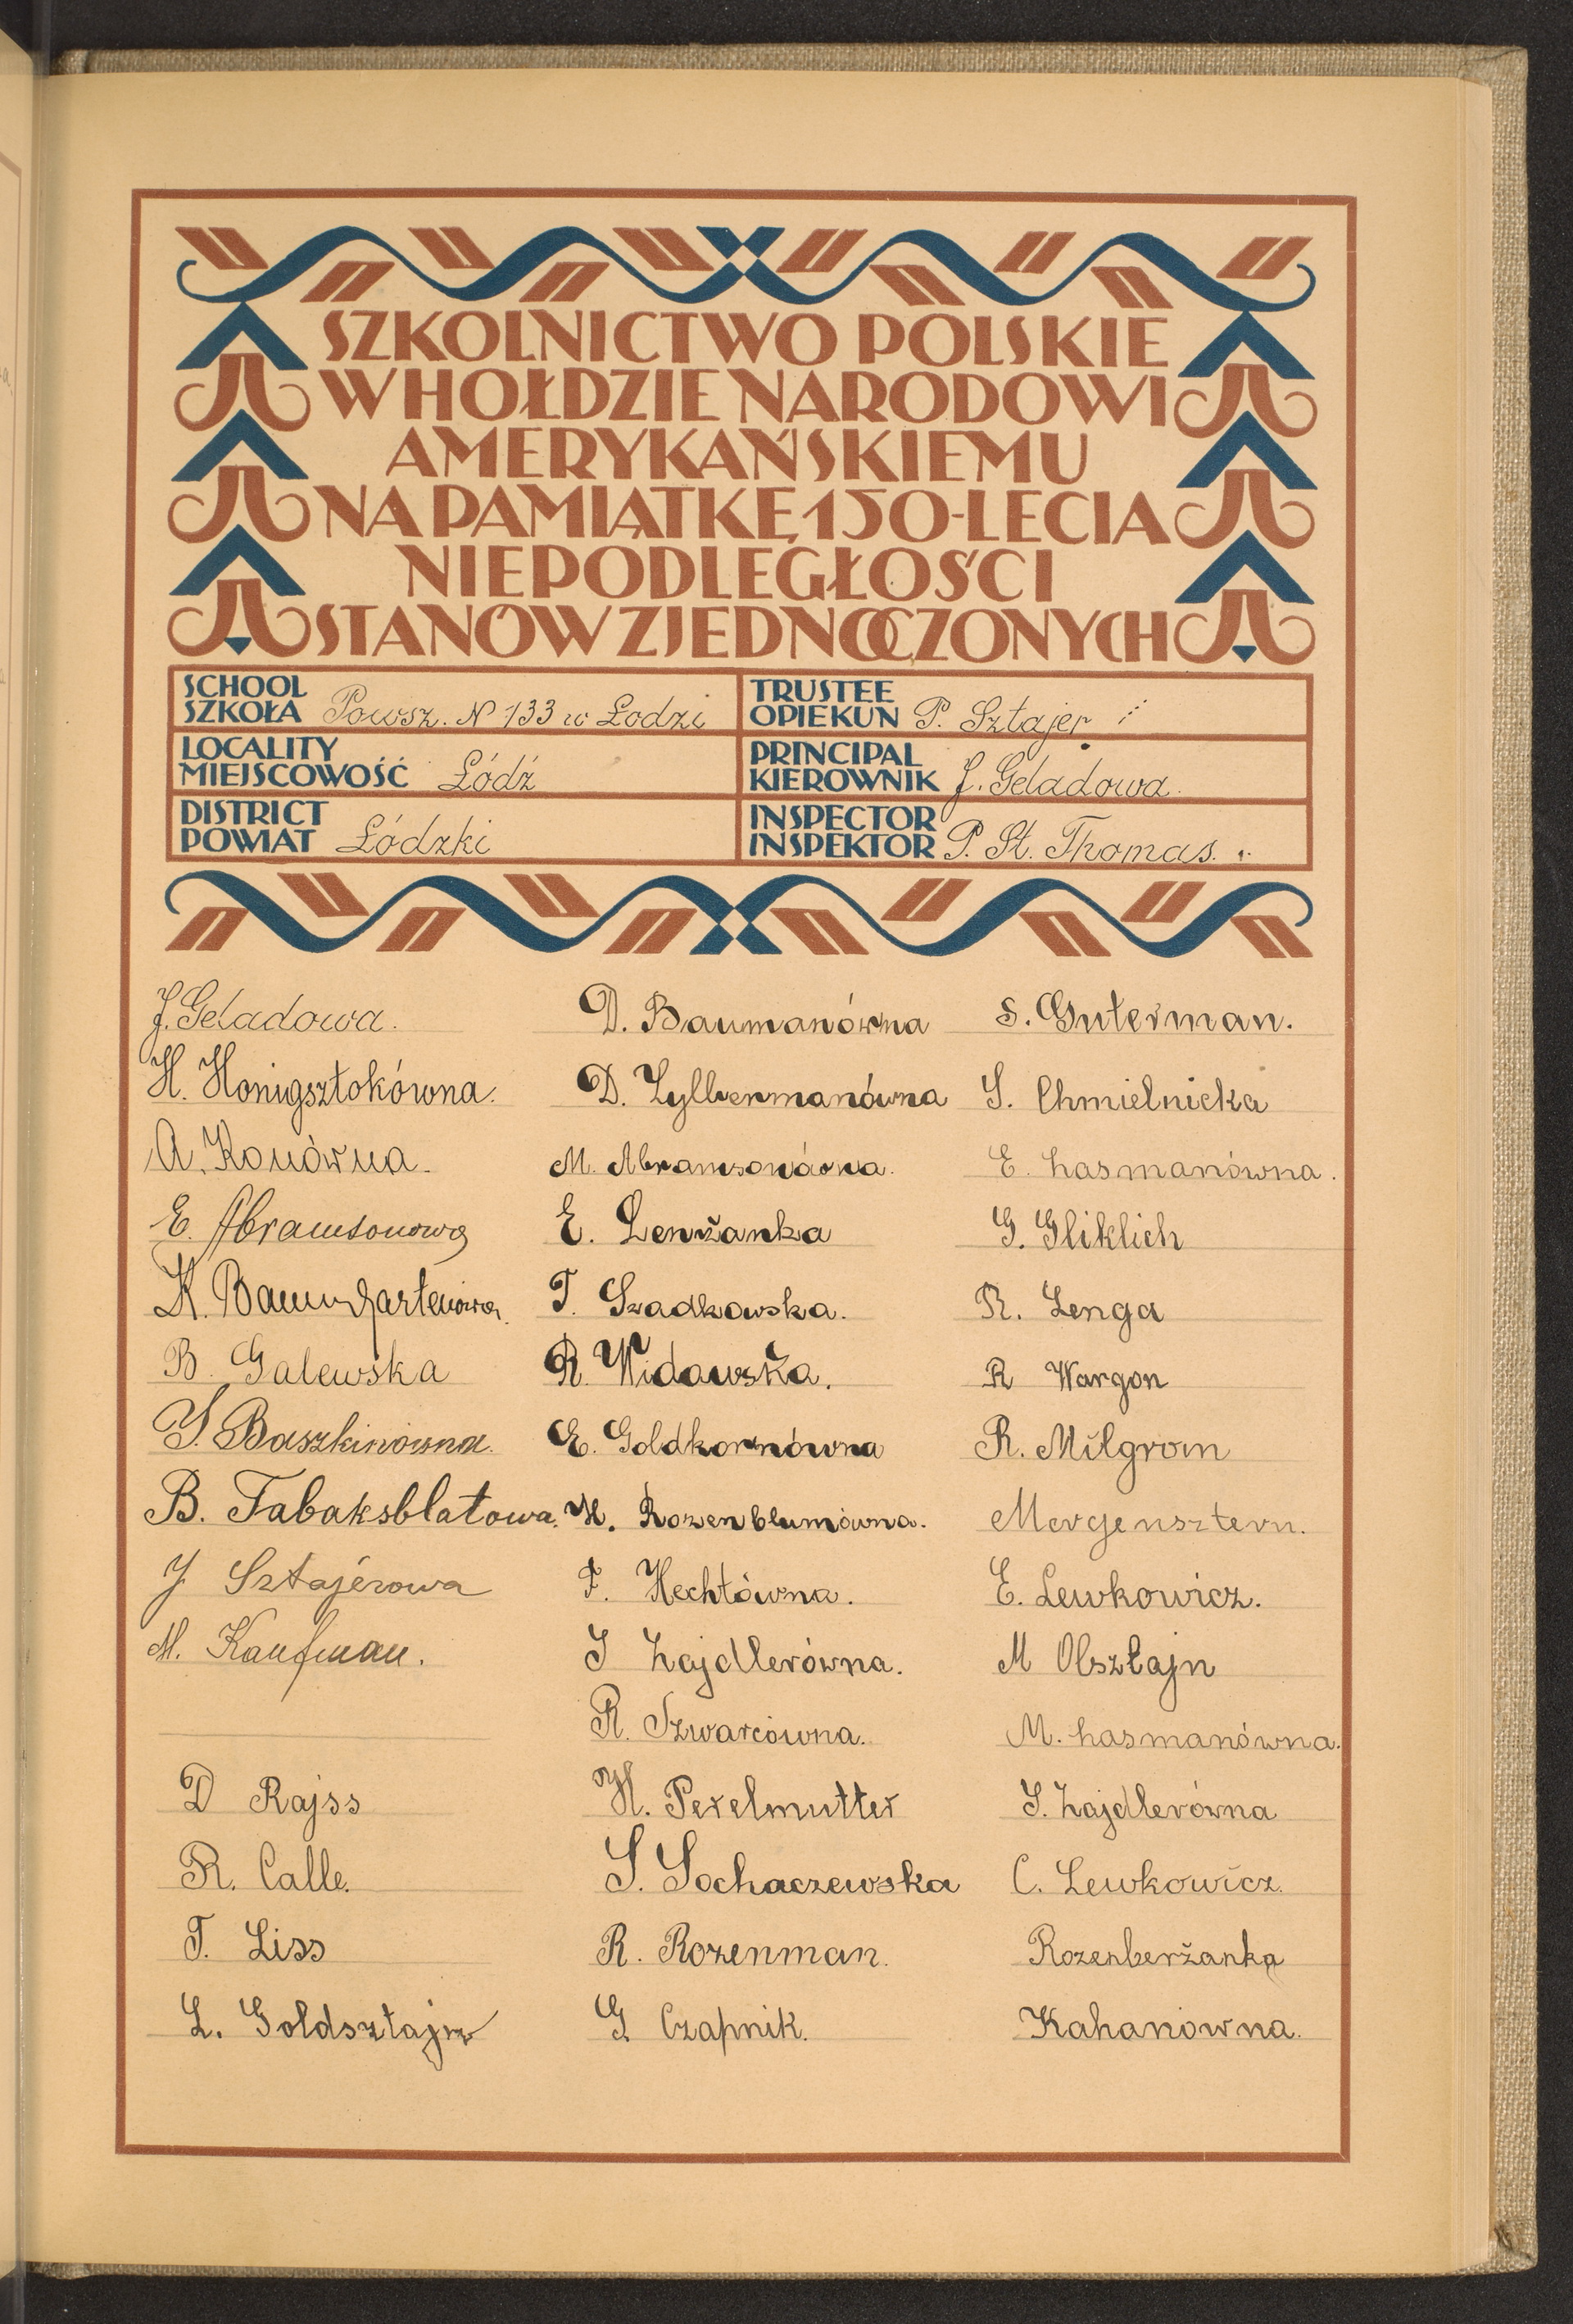 SZKOLNICTWO POLSKIE
W HOŁDZIE NARODOWI
AMERYKAŃSKIEMU
NA PAMIĄTKĘ 150-LECIA
NIEPODLEGŁOŚCI
STANÓW ZJEDNOCZONYCH
SCHOOL
SZKOŁA Powsz. N 133 w Łodzi
LOCALITY
MIEJSCOWOŚĆ Łódź
DISTRICT
POWIAT Łódzki
TRUSTEE
OPIEKUN P. Sztajer
PRINCIPAL
KIEROWNIK J. Geladowa.
INSPECTOR
INSPEKTOR P. St. Thomas.
J. Geladowa.
H. Honigsztokówna.
A. Konówna.
E. Abramsonowa
K. Baumgartenowa.
B. Galewska
J. Baszkinówna.
B. Tabaksblatowa.
J Sztajerowa
M. Kaufman.
D Rajss
R. Calle.
T. Liss
L. Goldsztajn
D. Baumanówna
D. Zylbermanówna
M. Abramsonówna.
E. Lenżanka
T. Szadkowska.
R. Widawska.
E. Goldkornówna
H. Rozenblumówna.
F. Hechtówna.
S Zajdlerówna.
R. Szwarcówna.
H. Perelmutter
S. Sochaczewska
R. Rozenman.
G. Czapnik.
S. Guterman.
S. Chmielnicka
E. Hasmanówna.
G. Gliklich
R. Zenga
R Wargon
R. Milgrom
Morgensztern.
E. Lewkowicz.
M Olsztajn
M. Hasmanówna.
S. Zajdlerówna
C. Lewkowicz.
Rozenberżanka
Kahanówna.